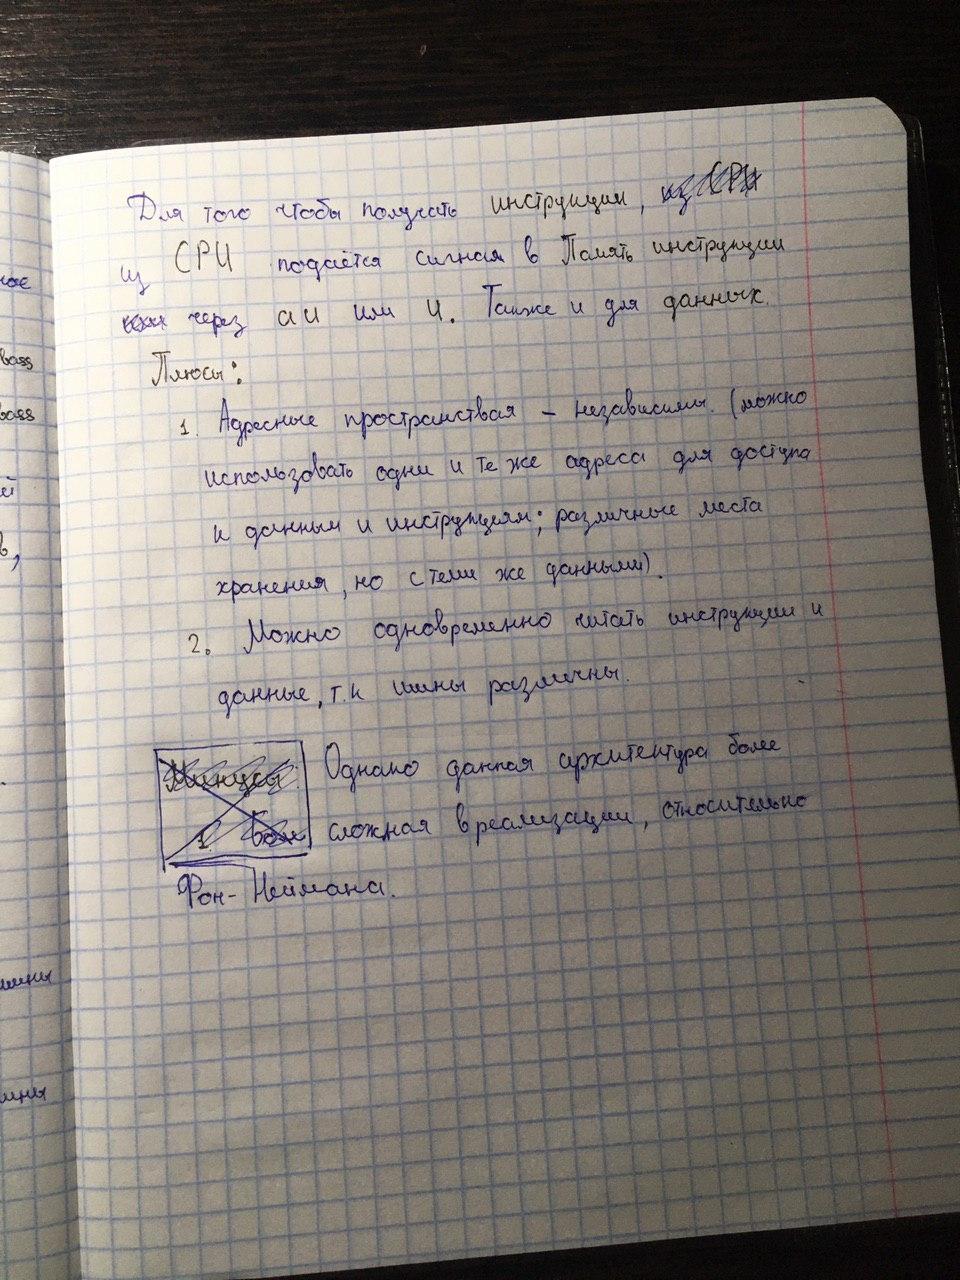 Для того чтобы получать инструкции, из CPU
из CPU подаётся сигнал в Память инструкции
через аи или и. Также и для данных.
Плюсы:
1. Адресные пространствая – независимы. (можно
использовать одни и те же адреса для доступа
к данным и инструкциям; различные места
хранения, но с теми же данными).
2. Можно одновременно читать инструкции и
данные, т.к шины различны.
Минусы: Однако данная архитектура более
1. Бол сложная в реализации, относительно
Фон-Неймана.
bass
bass
й
в,
шины
шины